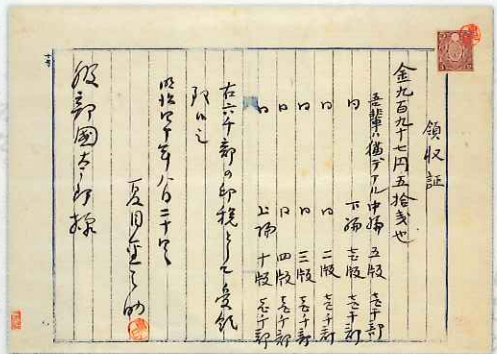 領収証
金九百九十七円五拾弐也
吾輩ハ猫デアル 中編 五版 壱千部
同 下編 壱版 壱千部
同 同 二版 壱千部
同 同 三版 壱千部
同 同 四版 壱千部
同 上編 十版 壱千部
右六千部の印税として受領
即候也
明治四十年八月二十日
夏目金之助
服部國太郎様